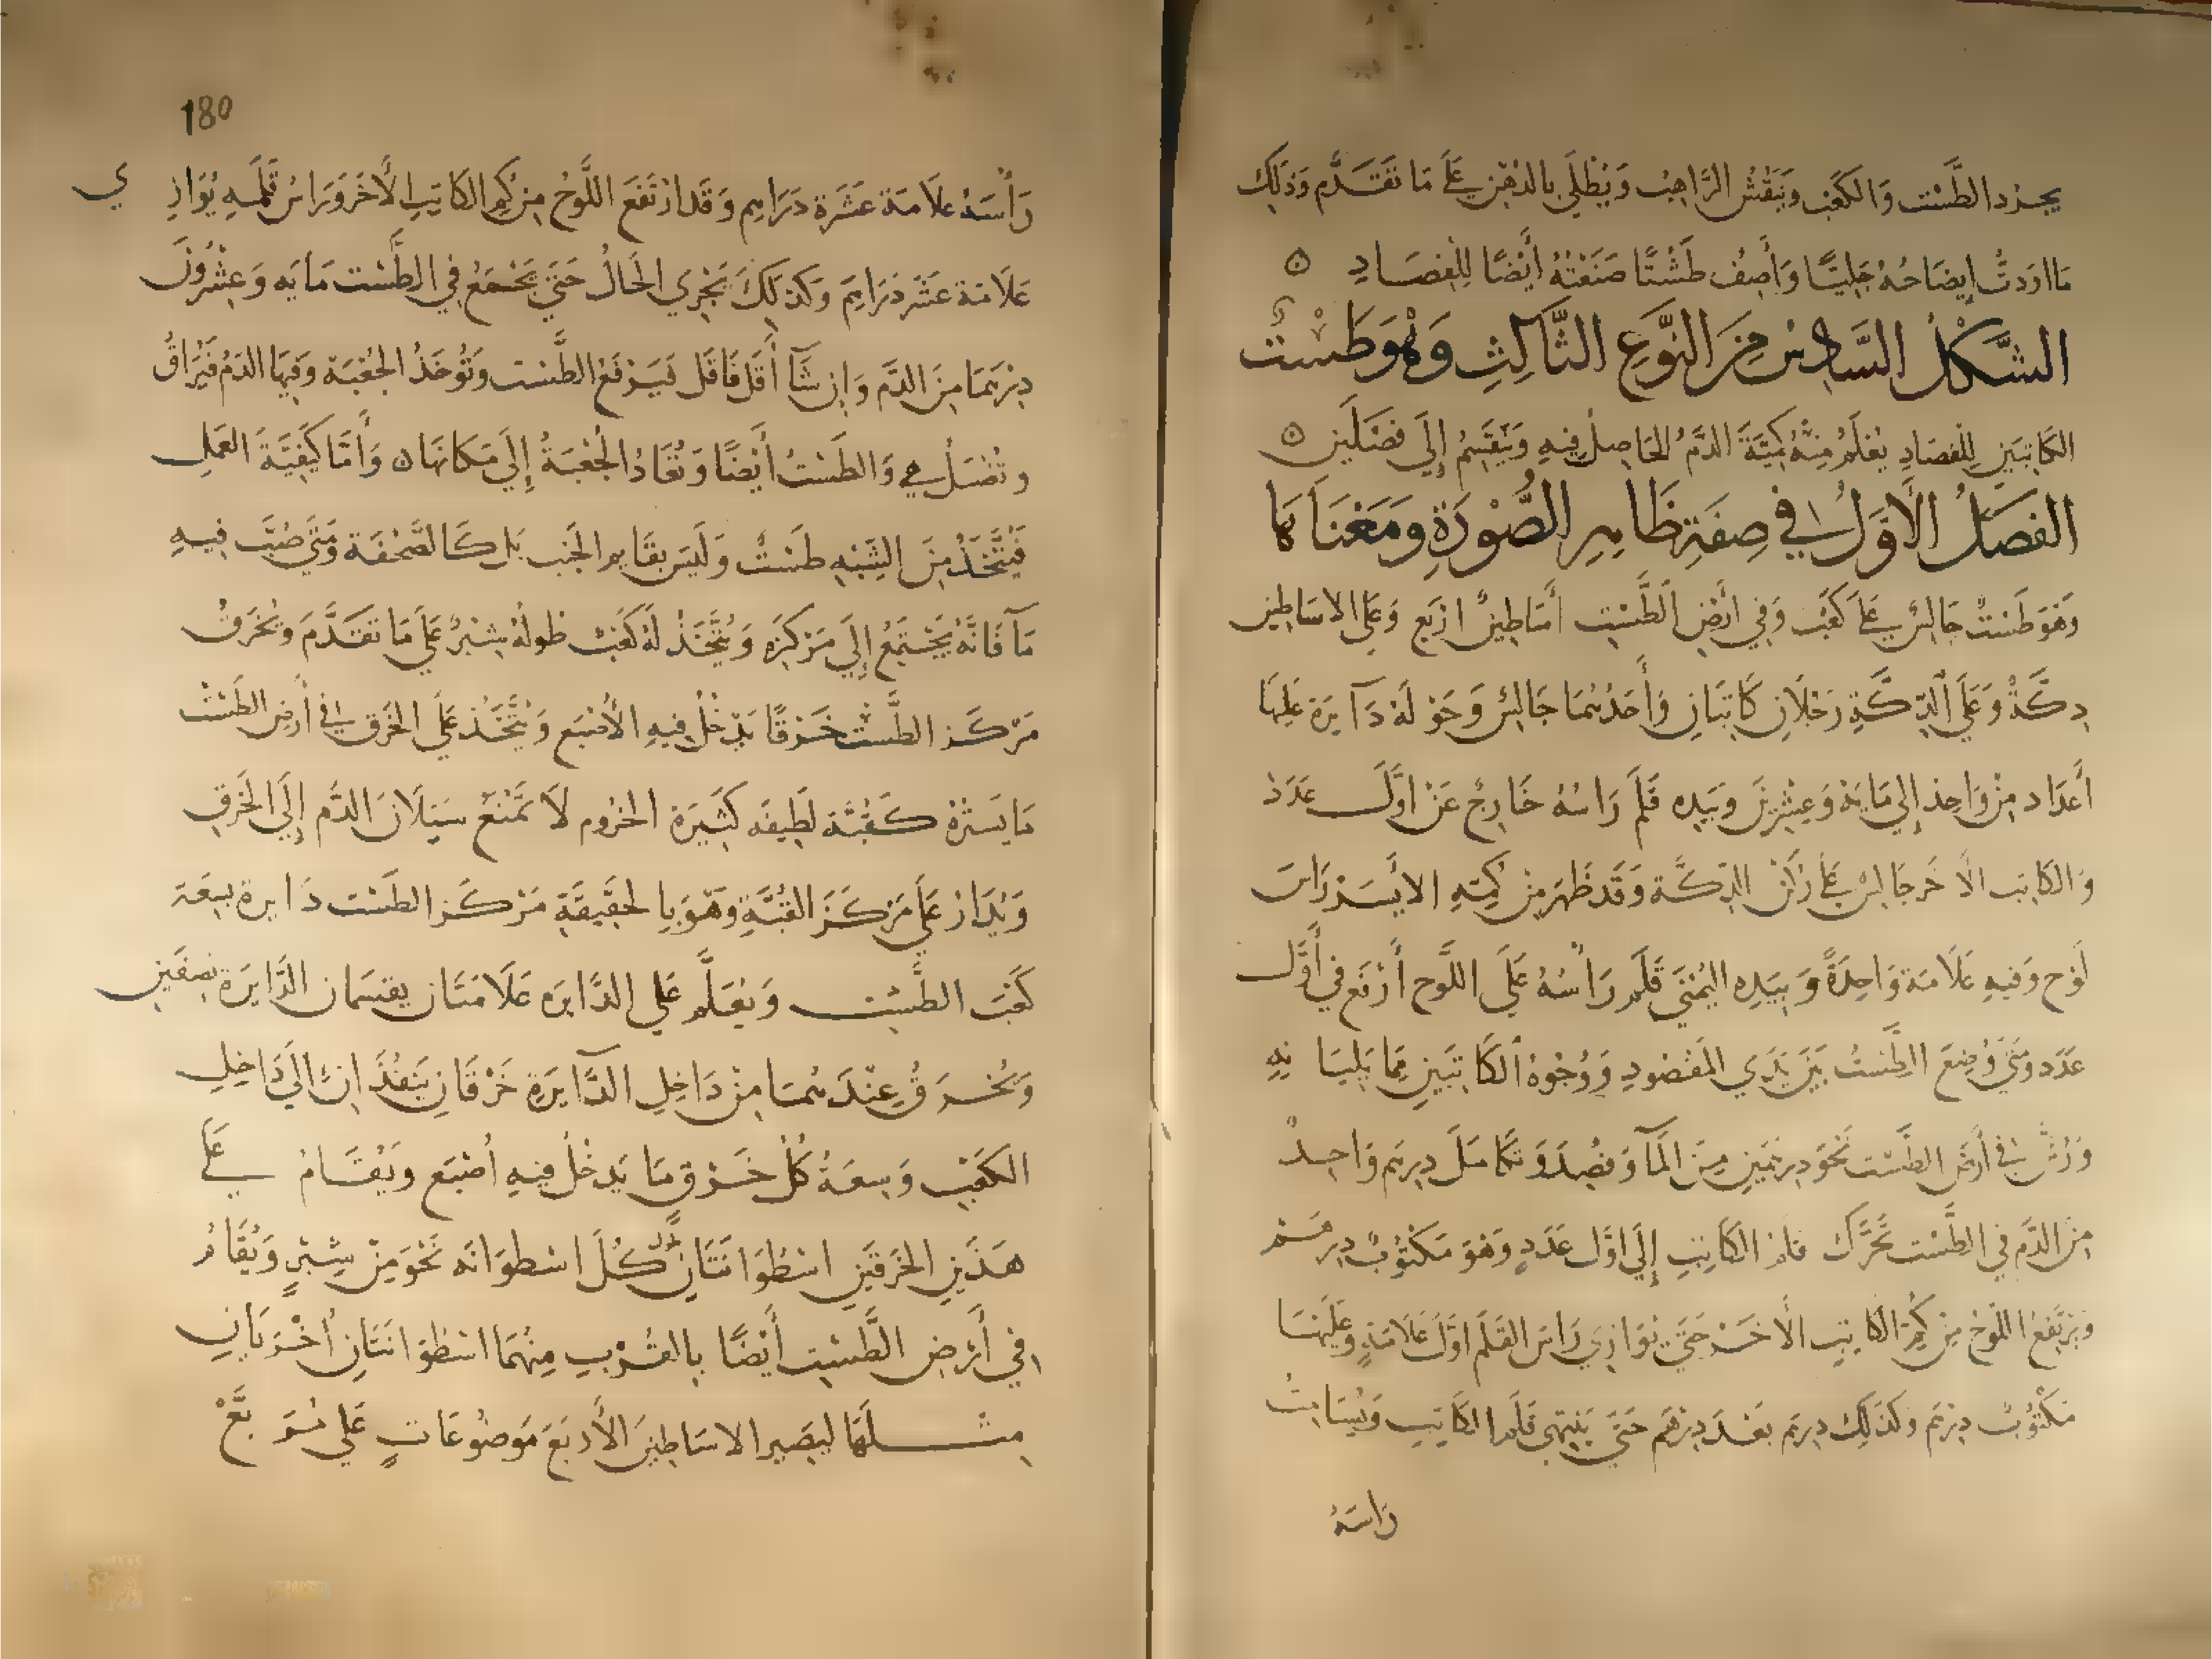 يجرد الطَّسْت وَالكَعْب وَيَنقُش الرَّاهِب وَيُطلَى بالدهن عَلَى مَا تَقَدَّم وَذَلِكَ
مَا اردتُ إيضَاحُهُ جَلِيًّا وَأَصِفُ طَسْتًا صَنَعْتُهُ أَيْضًا لِلْفِصَادِ ٥
الشَّكْلُ السَّادِسُ مِنَ النَّوْعِ الثَّالِثِ وَهُوَ طَسْت
الكَاتِبَينِ لِلفصَادِ يُعْلَمُ مِنْهُ كَمِيَّةَ الدَّمُ الحَاصِل فِيهِ وَيَنْقَسِمُ إِلَى فَصْلَيْنِ ٥
الفَصْلُ الأَوَّلُ في صِفَةِ ظَاهِرِ الصُّوْرَةِ وَمَعْنَاهَا
وَهُوَ طَسْتٌ جَالِس عَلَى كَعْب وَفِي ارْضِ الطَّسْتِ أَسَاطِينُ ارْبَع وَعَلَى الاسَاطِين
دِكَّةٌ وَعَلَى الدِّكَّةِ رَجُلَانِ كَاتِبَانِ وَأَحَدُهُمَا جَالِسٌ وَحَوْلَهُ دَآيرَة عَلَيْهَا
أَعدَاد مِنْ وَاحِد إِلى مَايَة وَعِشْرِينَ وَبِيَدِه قَلَم رَاسُهُ خَارِجٌ عَنْ اوَّلِ عَدَد
وَالكَاتِب الآخَر جَالِسٌ عَلَى رُكنِ الدِّكَّة وَقَد ظَهَر مِنْ كُمِّهِ الايسَر رَاس
لَوْح وَفِيهِ عَلَامَة وَاحِدَةً وَبِيَدِهِ اليُمْنَى قَلَم رَأْسُهُ عَلَى اللَّوْح أَرْفَع في أَوَّل
عَدَد وَمَتَى وُضِعَ الطَّسْتُ بَيْنَ يَدَي المَفْصُودِ وَوُجُوهُ الكَاتِبَينِ مِمَّا يَلِيَانِهِ
وَرُشَّ فِي أَرْضِ الطَّسْت نَحْو دِرهَمَينِ مِنَ المآءِ وَفُصِدَ وَتَكَامَلَ دِرهَم وَاحِد
مِنَ الدَّم في الطَّسْت تَحَرَّك قلم الكَاتِب إِلَى اوَّل عَدَدٍ وَهوَ مَكْتُوبٌ دِرهَم
وَيَرْتَفِعُ اللَّوْح مِنْ كُم الكاتِبِ الآخَر حَتَّى يُوَازِي رَاسَ القَلَم اوَّلَ عَلَامَةٍ وَعَلَيْهَا
مَكْتُوبٌ دِرْهَم وَكَذَلِكَ دِرهَم بَعْدَ دِرْهَم حَتَّى يَنْتَهِي قَلَم الكَاتِبِ وَيُسَامِتُ
رَاسَهُ
180
رَأْسَهُ عَلَامَة عَشَرَة دَرَاهِم وَقَد ارْتَفَعَ اللَّوْحُ مِنْ كُمِّ الكَاتِبِ الآخَر وَرَاسُ قَلَمِهِ يُوَازِي
عَلَامَة عَشَر دَرَاهِم وَكَذَلِكَ يَجْرِي الحَالُ حَتَّى يَجْتَمِعُ فِي الطَّسْت مَايَه وَعِشْرُونَ
دِرْهَمًا مِنَ الدَّمِ وَإِن شَآءَ أَقَل فَاقَل فَيَرفَع الطَّسْت وَتُوخَذُ الجُعْبَة وَفِيهَا الدَمُ فَيُرَاقُ
وَتُغْسَلُ هي وَالطَّسْتُ أَيْضًا وَتُعَادُ الجُعْبَةُ إِلَى مَكَانِهَا ٥ وَأَمَّا كَيْفِيَّةُ العَمَلِ
فَيُتَّخَذُ مِنَ الشَّبَهِ طَسْتٌ وَلَيْسَ بِقَايم الجَنب بَل كَالصَّحْفَة وَمَتَى صُبَّ فِيهِ
مَآء فَانَّهُ يَجْتَمِعُ إِلَى مَرْكَزِهِ وَيُتَّخَذُ لَهُ كَعْب طولُهُ شِبْرٌ عَلَى مَا تَقَدَّمَ وَيُخْرَقُ
مَرْكَز الطَّسْت خَرْقًا يَدْخُلُ فِيهِ الأصْبَع وَيُتَّخَذُ عَلَى الخَرْق فِي أَرْضِ الطَّسْت
مَا يَسْتُرُهُ كَقُبَّة لَطِيفَه كَثِيرَة الخُرُوم لَا تَمْنَعُ سَيَلَانَ الدَّم إِلَى الخَرْقِ
وَيُدَارُ عَلَى مَرْكَزِ القُبَّةِ وَهُوَ بِالحَقِيقَةِ مَرْكَز الطَّسْت دَايرة بِسِعَة
كَعْبَ الطَّسْت وَيُعَلَّم عَلى الدَّايرَه عَلَامَتَان يقسمَان الدَّايرَة نِصْفَين
وَيُخْرَقُ عِنْدَهُمَا مِنْ دَاخِلِ الدَّآيرَةِ خَرْقَانِ يَنْفُذَانِ إِلَى دَاخِلِ
الكَعْبِ وَسِعَةُ كُل خَرْقٍ مَا يَدخُلُ فِيهِ أصْبَع وَيُقَامُ عَلَى
هَذَيْنِ الخَرقَيْنِ اسْطُوَانَتَانِ طُوْلُ كُلَ اسْطوَانَه نَحْوَ مِنْ شِبْرٍ وَيُقَامُ
فِي أَرْضِ الطَّسْتِ أَيْضًا بِالقُرْبِ مِنْهُمَا اسْطُوَانَتَانِ أُخْرَيَانِ
مِثْلَهَا لِيَصِيرا الاسَاطِينَ الأَرْبَع مَوْضُوعَاتٍ عَلَى مُرَبَّعْ